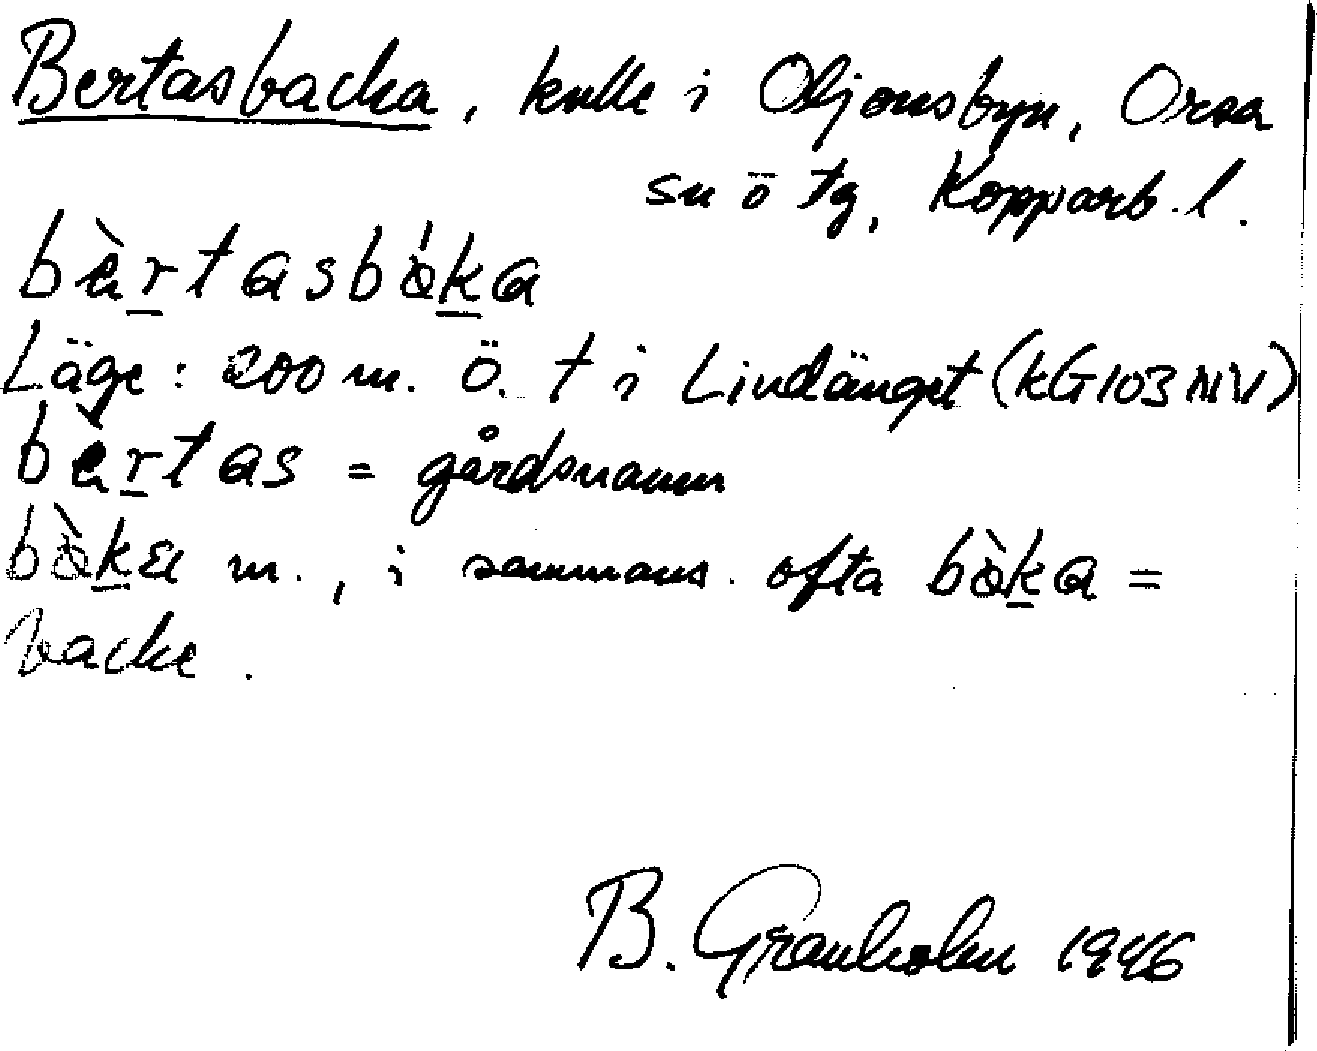 Bertasbacka, kulle i Oljonsbyn, Orsa
sn ö tg, Kopparb. l.
bèrtasbáka
Läge: 200 m. Ö. t i Lindänget (kG103NV)
bèrtas = gårdsnamn
bàkɛ m., i sammans. ofta bàka =
backe.
B. Granholm 1946